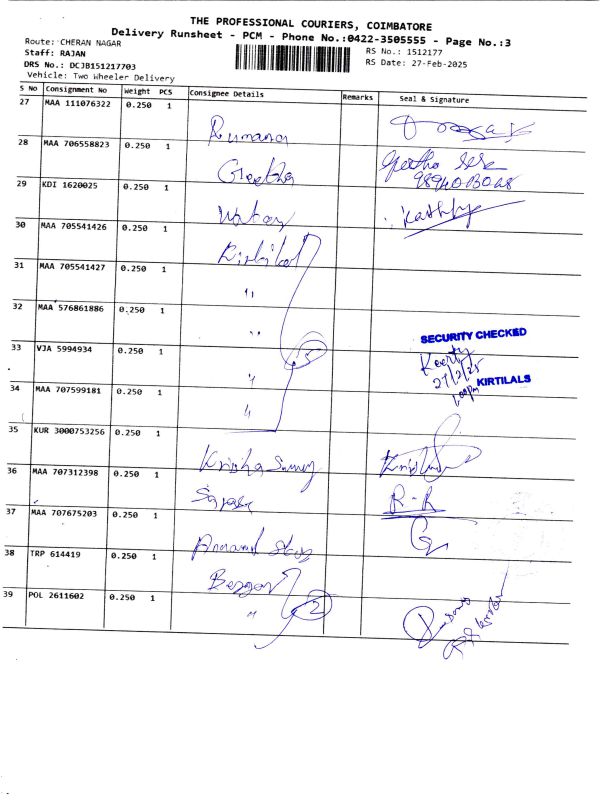 THE PROFESSIONAL COURIERS, COIMBATORE
Delivery Runsheet - PCM - Phone No.:0422-3505555 - Page No.:3
Route: CHERAN NAGAR
RS No.: 1512177
Staff: RAJAN
RS Date: 27-Feb-2025
DRS No.: DCJB151217703
Vehicle: Two Wheeler Delivery
S No Consignment No Weight PCS Consignee Details Remarks Seal & Signature
27 MAA 111076322 0.250 1
28 MAA 706558823 0.250 1 Geetha
29 KDI 1620025 0.250 1
30 MAA 705541426 0.250 1
31 MAA 705541427 0.250 1 "
32 MAA 576861886 0.250 1 "
SECURITY CHECKED
33 VJA 5994934 0.250 1 " 5
27/2/25
KIRTILALS
34 MAA 707599181 0.250 1 "
35 KUR 3000753256 0.250 1 Krishna Samy
36 MAA 707312398 0.250 1 R-R
37 MAA 707675203 0.250 1 Anand
38 TRP 614419 0.250 1
39 POL 2611602 0.250 1 " 2